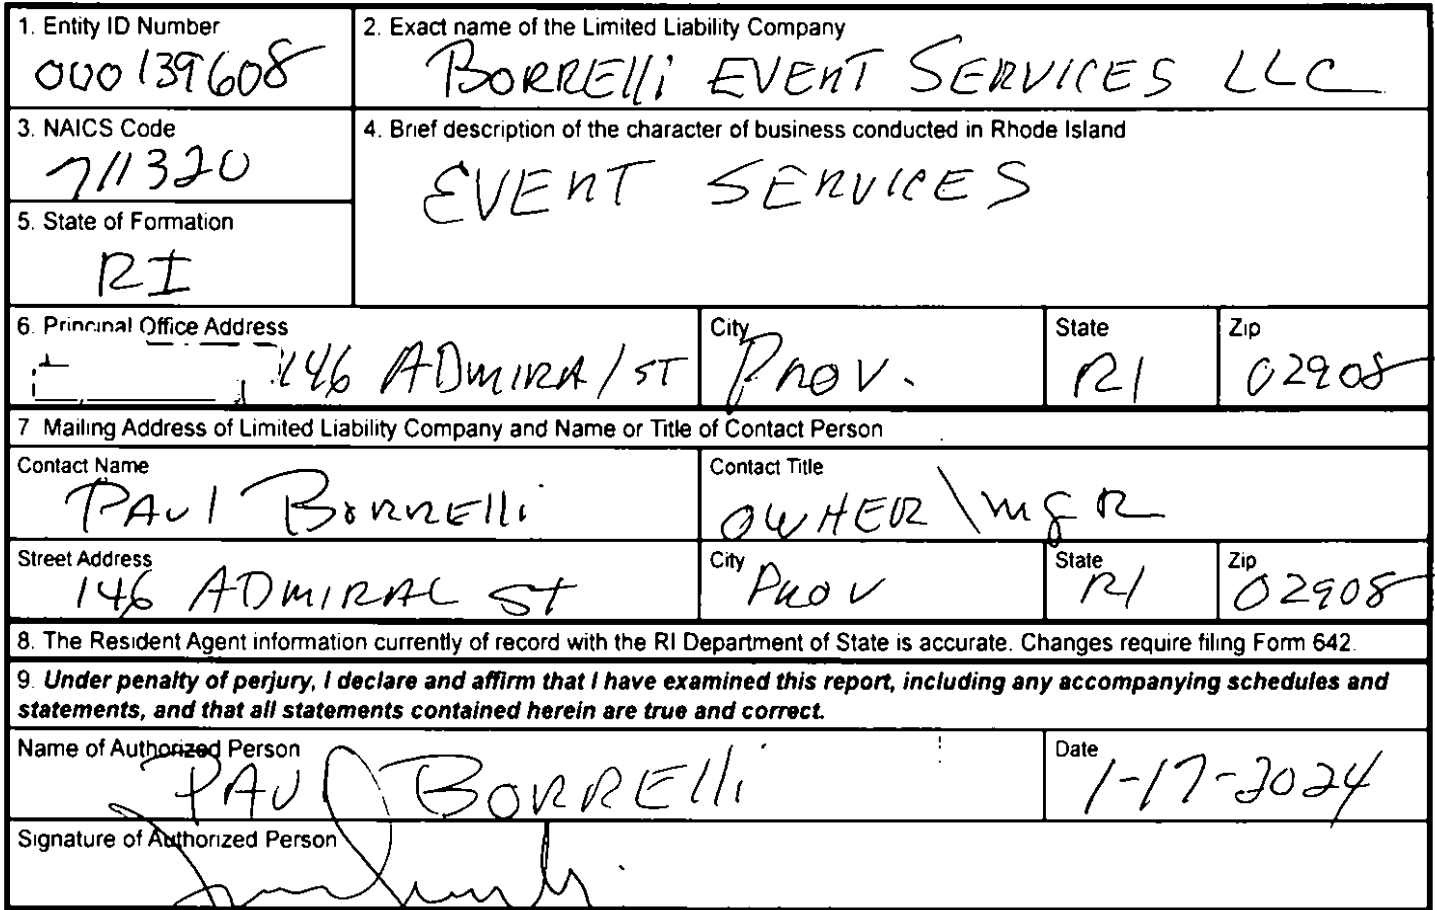 1. Entity ID Number
000139608
2. Exact name of the Limited Liability Company
BORRElli EVEnT SERVICES LLC
3. NAICS Code
711320
4. Brief description of the character of business conducted in Rhode Island
EVEnT SERVICES
5. State of Formation
RI
6. Principal Office Address
146 ADmIRAl ST
City
PROV.
State
RI
Zip
02908
7 Mailing Address of Limited Liability Company and Name or Title of Contact Person
Contact Name
PAUl BORRElli
Contact Title
OWHER\mGR
Street Address
146 ADMIRAL ST
City
PROV
State
RI
Zip
02908
8. The Resident Agent information currently of record with the RI Department of State is accurate. Changes require filing Form 642.
9. Under penalty of perjury, I declare and affirm that I have examined this report, including any accompanying schedules and
statements, and that all statements contained herein are true and correct.
Name of Authorized Person
PAUl BORRElli
Date
1-17-2024
Signature of Authorized Person